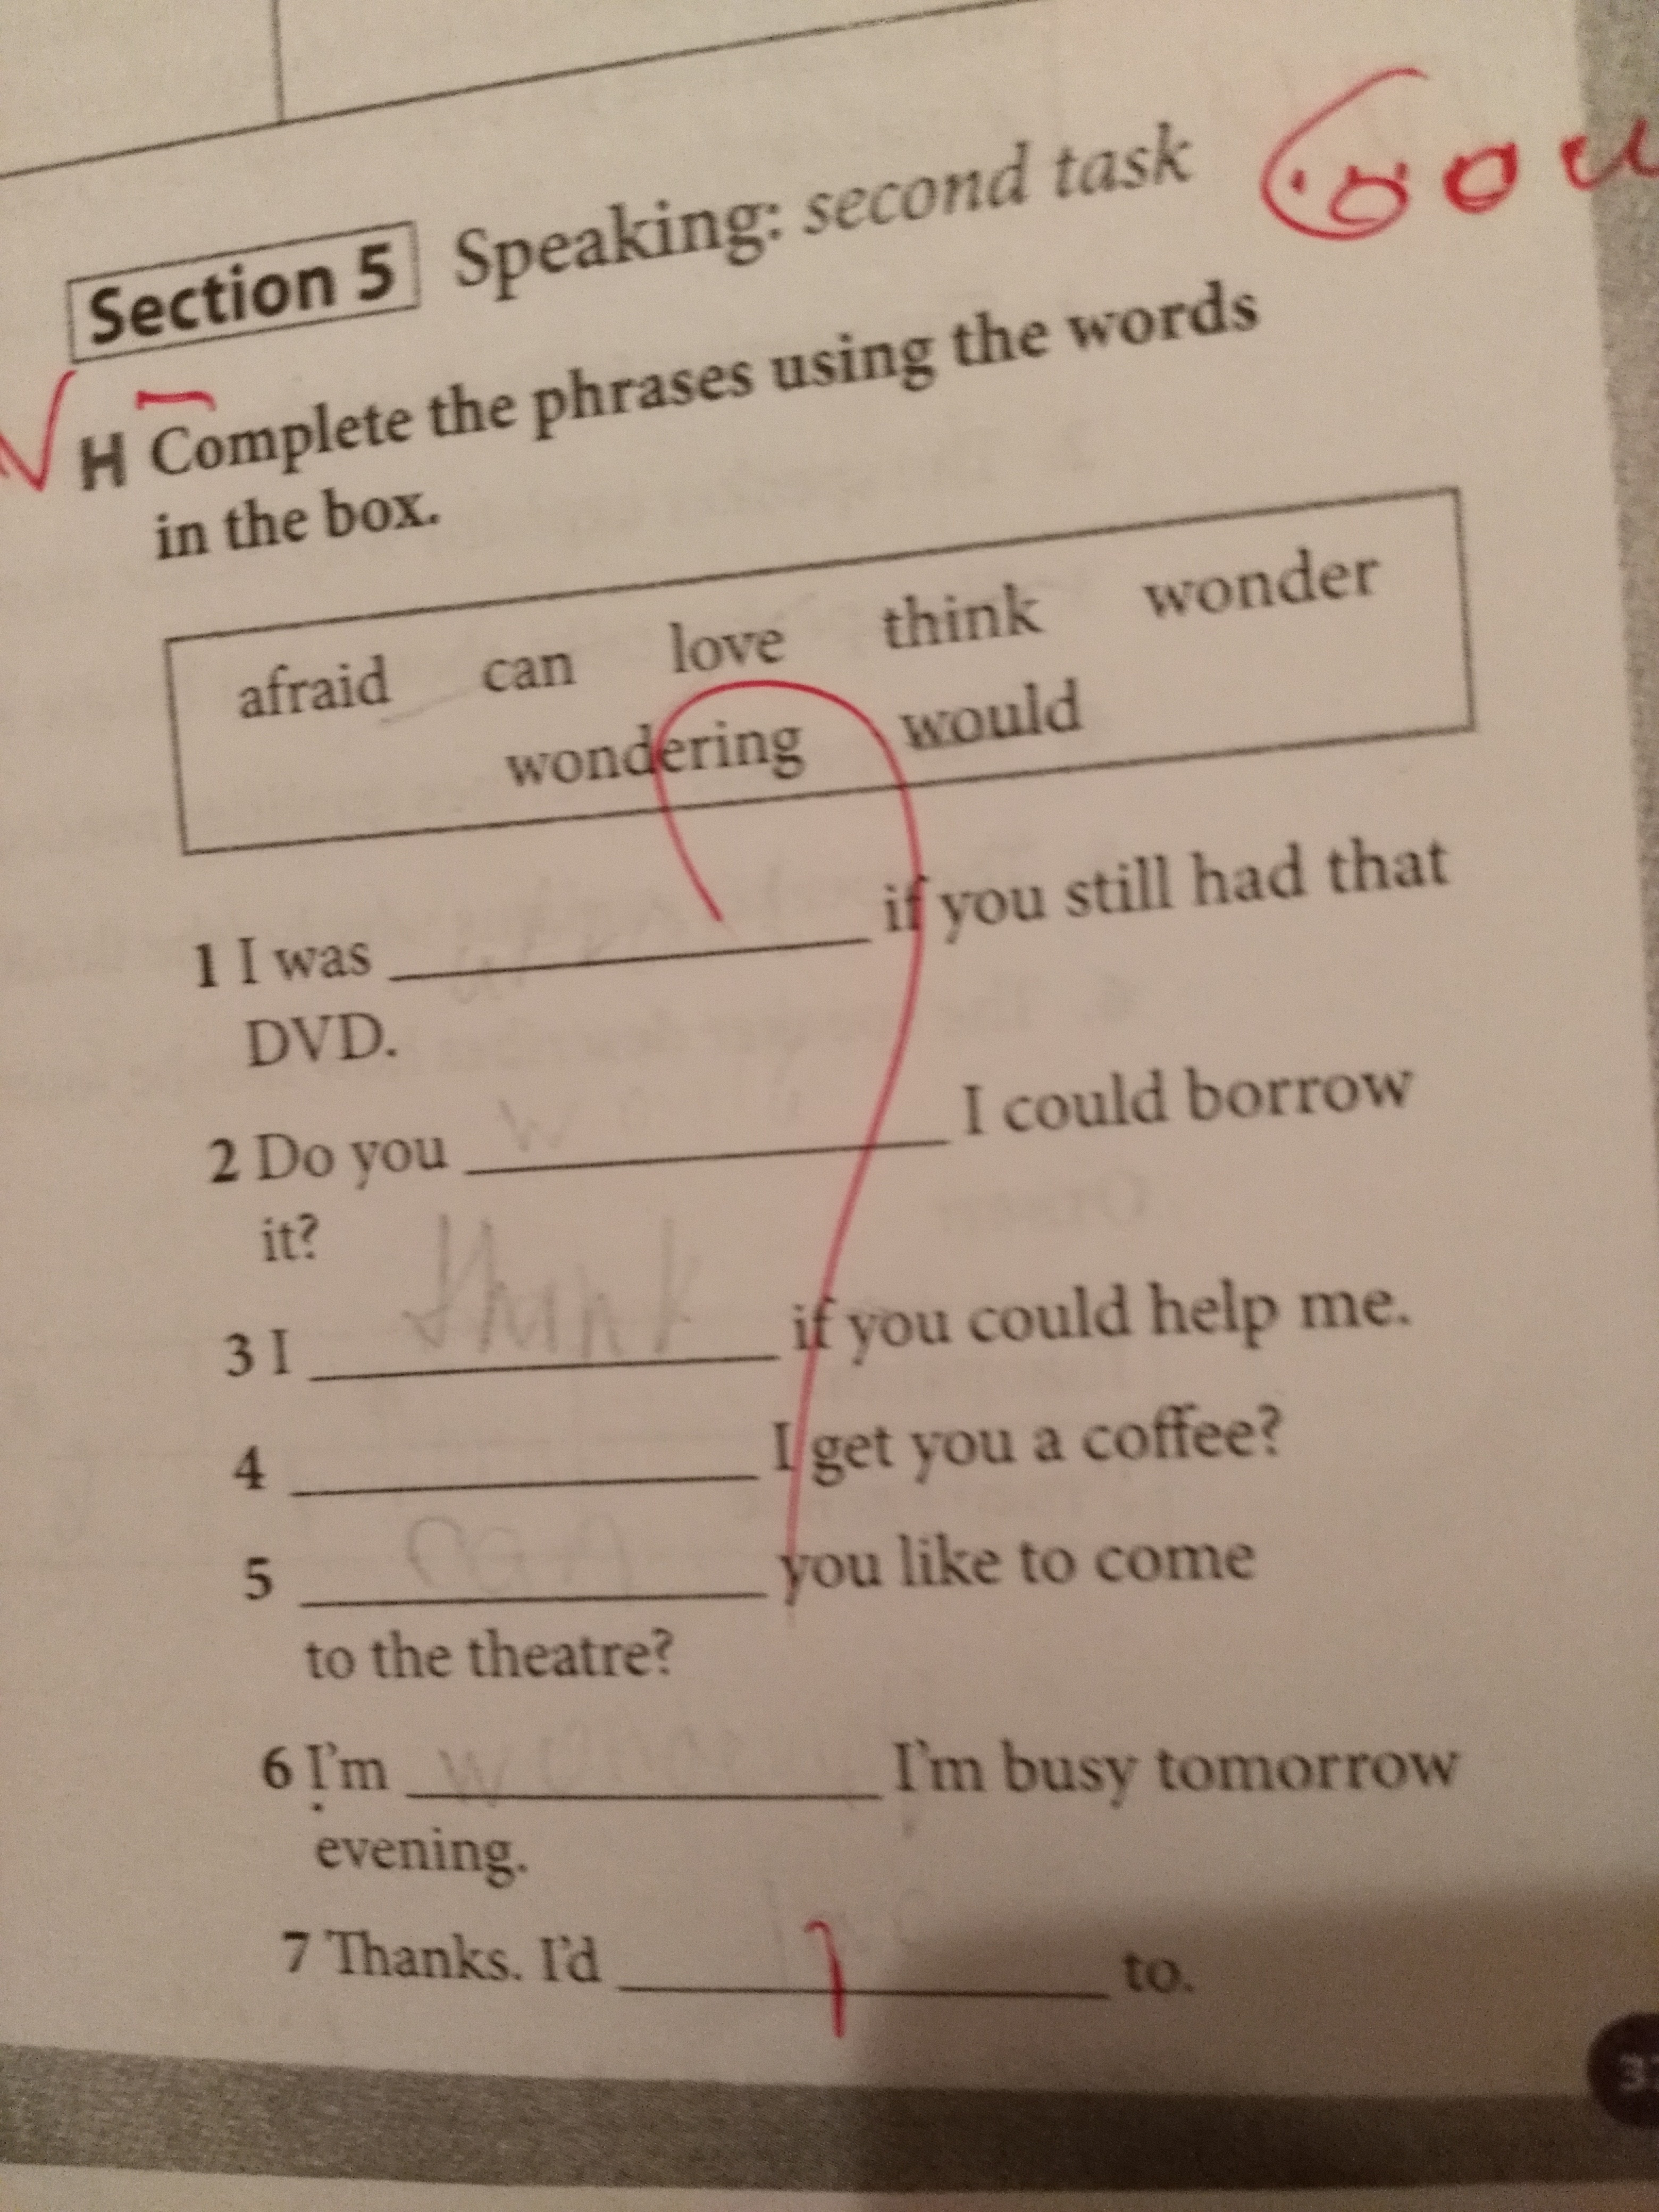 Section 5 Speaking: second task
H Complete the phrases using the words
in the box.
afraid can love think wonder
wondering would
1 I was if you still had that
DVD.
2 Do you I could borrow
it?
3 I think if you could help me.
4 I get you a coffee?
5 can you like to come
to the theatre?
6 I'm I'm busy tomorrow
evening.
7 Thanks. I'd to.